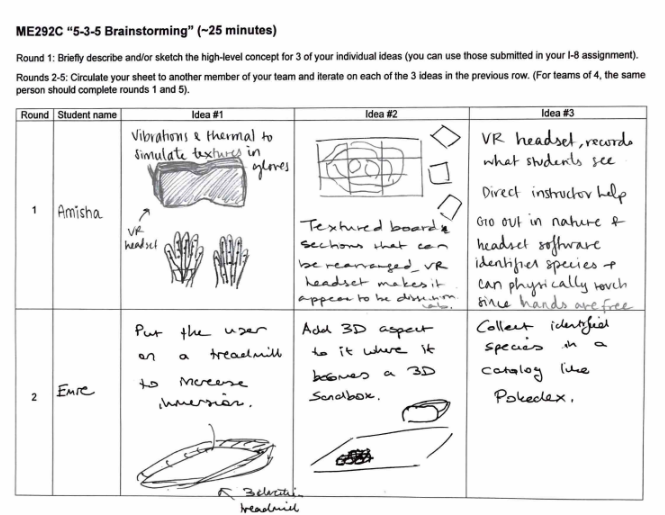 ME292C "5-3-5 Brainstorming" (~25 minutes)
Round 1: Briefly describe and/or sketch the high-level concept for 3 of your individual ideas (you can use those submitted in your I-8 assignment).
Rounds 2-5: Circulate your sheet to another member of your team and iterate on each of the 3 ideas in the previous row. (For teams of 4, the same
person should complete rounds 1 and 5).
Round Student name Idea #1 Idea #2 Idea #3
1
Amisha
Vibrations & thermal to
simulate textures in
gloves
VR
headset
Textured board &
sections that can
be rearranged, VR
headset makes it
appear to be dissection
lab.
VR headset, records
what students see
Direct instructor help
Go out in nature &
headset software
identifies species →
can physically touch
since hands are free
2
Emre
Put the user
on a treadmill
to increase
immersion.
treadmill
Add 3D aspect
to it where it
becomes a 3D
Sandbox.
Collect identified
species in a
catalog like
Pokedex.